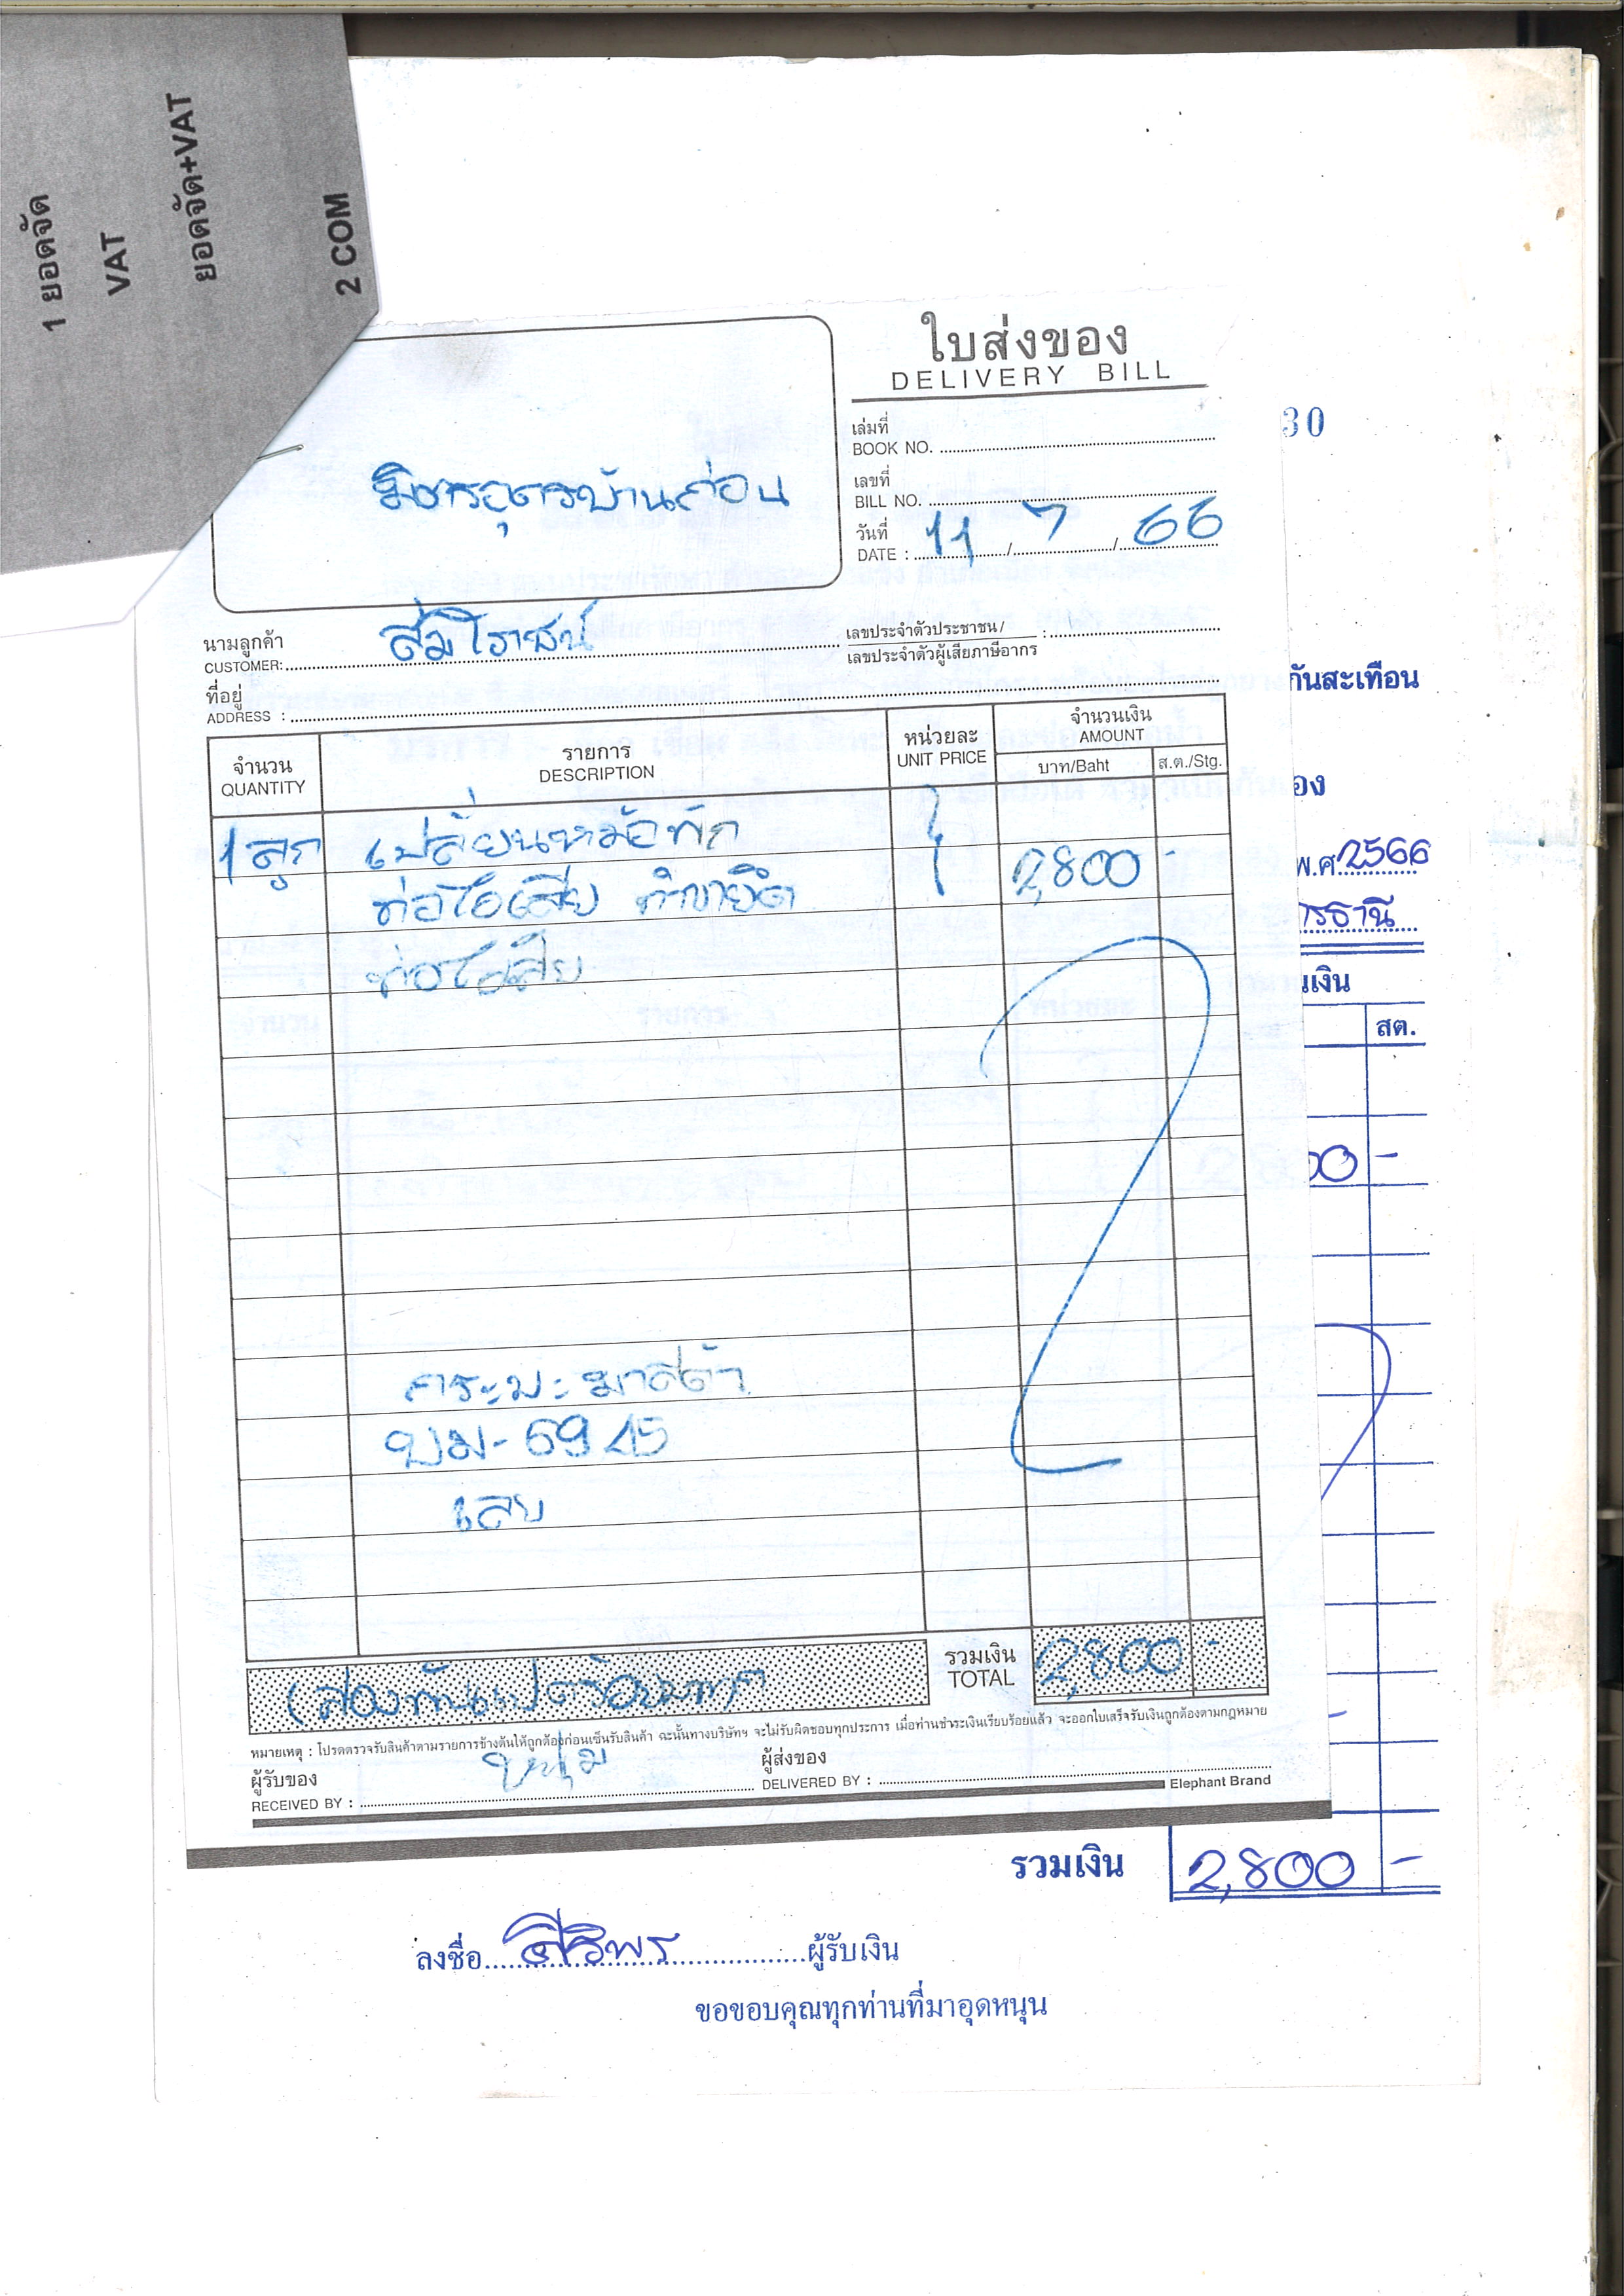 1 ยอดจัด
VAT
ยอดจัด+VAT
2 COM
ใบส่งของ
DELIVERY BILL
เล่มที่
BOOK NO.
เลขที่
BILL NO.
วันที่
DATE : 11 / 7 / 66
มิตรอุดรบ้านก่อน
นามลูกค้า
CUSTOMER: สมโรจน์
เลขประจำตัวประชาชน/
เลขประจำตัวผู้เสียภาษีอากร :
ที่อยู่
ADDRESS :
จำนวน รายการ หน่วยละ จำนวนเงิน
QUANTITY DESCRIPTION UNIT PRICE AMOUNT
บาท/Baht ส.ต./Stg.
1 ลูก เปลี่ยนหม้อพัก
ท่อไอเสีย ทำขายึด 2,800 -
ท่อไอเสีย
กระบะ มาสด้า
บม-6945
เลย
รวมเงิน
TOTAL 2,800 -
(สองพันแปดร้อยบาท)
หมายเหตุ : โปรดตรวจรับสินค้าตามรายการข้างต้นให้ถูกต้องก่อนเซ็นรับสินค้า ฉะนั้นทางบริษัทฯ จะไม่รับผิดชอบทุกประการ เมื่อท่านชำระเงินเรียบร้อยแล้ว จะออกใบเสร็จรับเงินถูกต้องตามกฎหมาย
ผู้รับของ
RECEIVED BY :
ผู้ส่งของ
DELIVERED BY :
Elephant Brand
30
กันสะเทือน
อง
พ.ศ. 2566
รธานี
เงิน
สต.
00 -
รวมเงิน 2,800 -
ลงชื่อ ศิริพร ผู้รับเงิน
ขอขอบคุณทุกท่านที่มาอุดหนุน